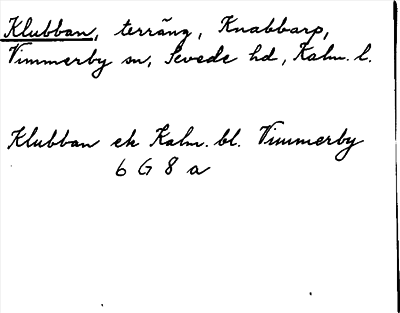 Klubban, terräng, Knabbarp,
Vimmerby sn, Sevede hd, Kalm. l.
Klubban ek Kalm. bl. Vimmerby
6 G 8 a